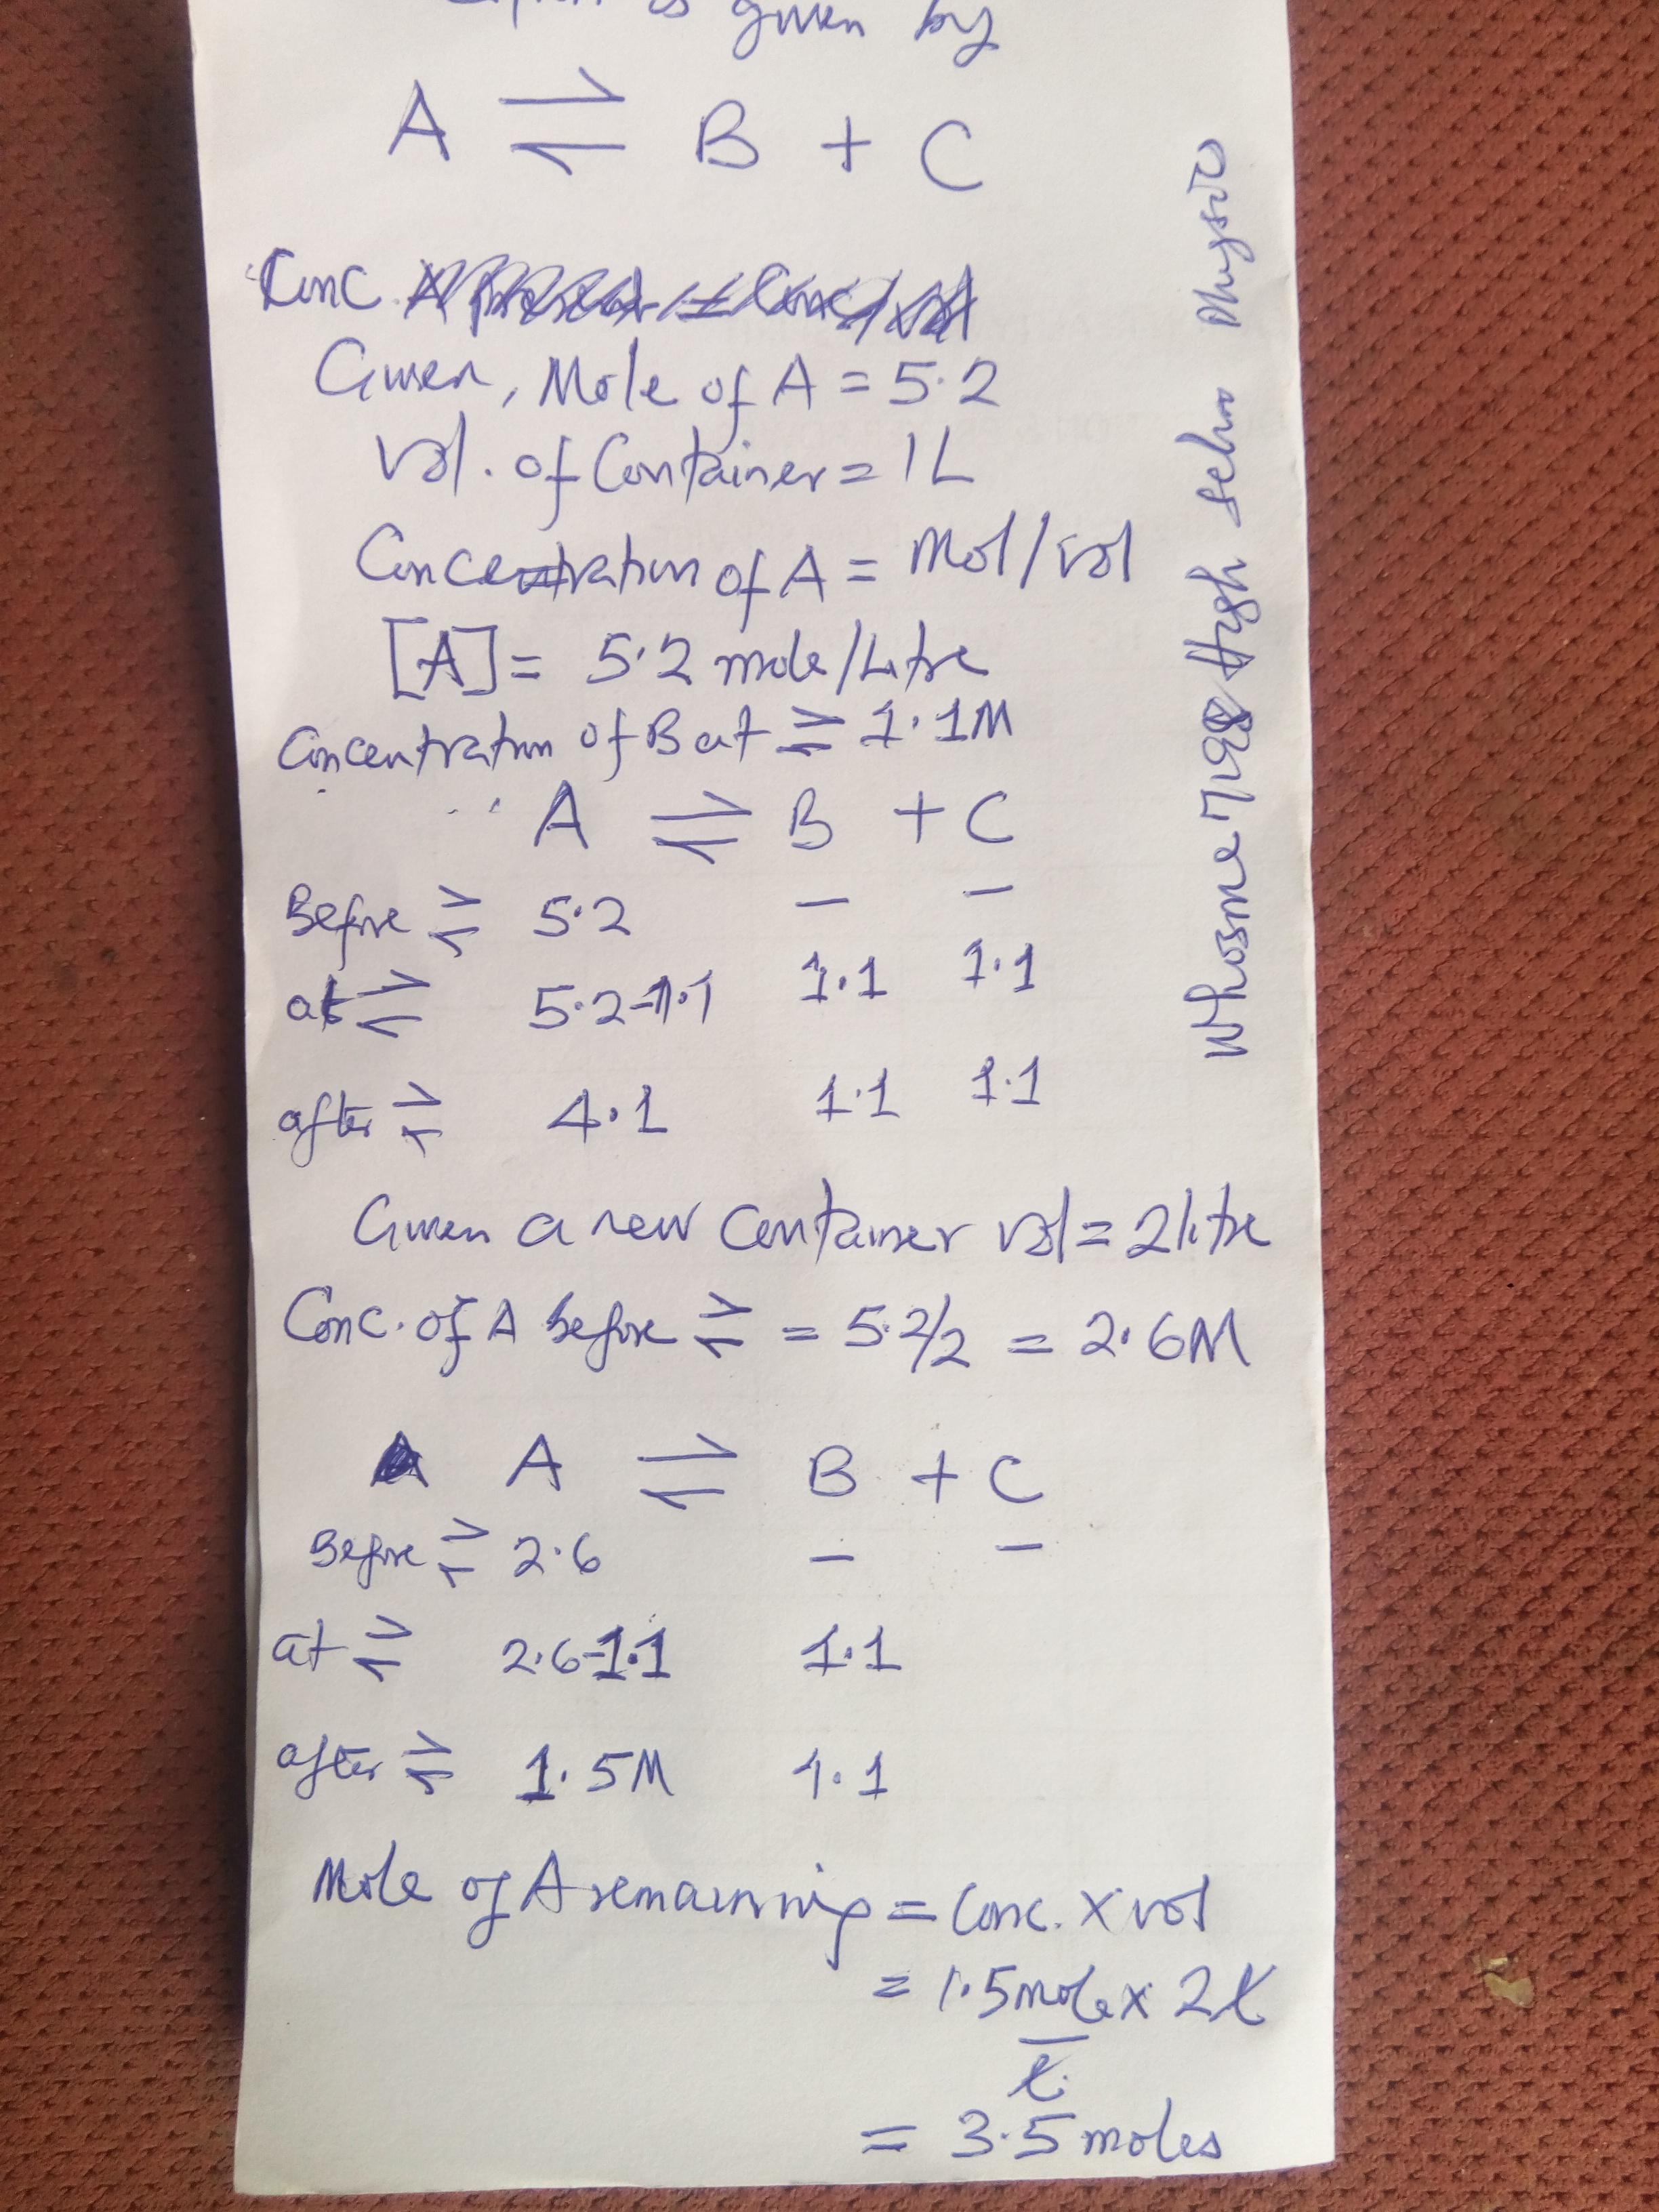 is given by
A ⇌ B + C
Conc.
Given, Mole of A = 5.2
Vol. of Container = 1L
Concentration of A = Mol/vol
[A] = 5.2 mole/Litre
Concentration of B at ⇌ 1.1M
A ⇌ B + C
Before ⇌ 5.2 – –
at ⇌ 5.2-1.1 1.1 1.1
after ⇌ 4.1 1.1 1.1
Given a new container vol = 2litre
Conc. of A before ⇌ = 5.2/2 = 2.6M
A ⇌ B + C
Before ⇌ 2.6 – –
at ⇌ 2.6-1.1 1.1
after ⇌ 1.5M 1.1
Mole of A remaining = Conc. x vol
= 1.5mole x 2L
L
= 3.5moles
Whosme7198 High schoo Physic